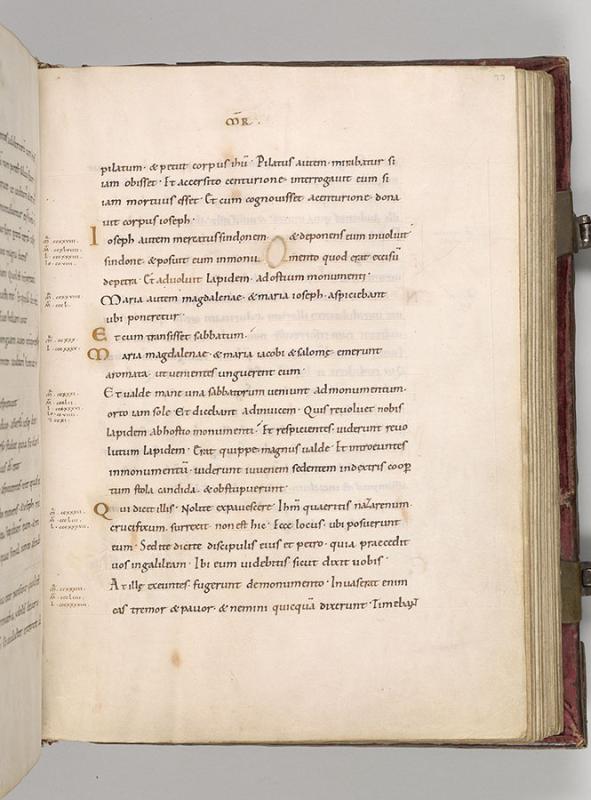 77
M̄R.
pilatum · & petiit corpus ihū · Pilatus autem mirabatur si
iam obisset · Et accersito centurione interrogavit eum si
iam mortuus esset · Et cum cognovisset a centurione dona
vit corpus ioseph ·
Ioseph autem mercatus sindonem & deponens eum involuit
sindone & posuit eum in monumento quod erat excisū
de petra · Et advoluit lapidem · ad ostium monumenti ·
Maria autem magdalenae & maria ioseph aspiciebant
ubi poneretur ·
Et cum transisset sabbatum ·
Maria magdalenae & maria iacobi & salome emerunt
aromata · ut venientes unguerent eum ·
Et valde mane una sabbatorum veniunt ad monumentum ·
orto iam sole · Et dicebant ad invicem · Quis revoluet nobis
lapidem ab hostio monumenti · Et respicientes · viderunt revo
lutum lapidem · Erat quippe magnus valde · Et introeuntes
in monumentū · viderunt iuvenem sedentem in dextris coop
tum stola candida · & obstupuerunt ·
Qui dicit illis · Nolite expavescere · Ihm̄ quaeritis nazarenum ·
crucifixum · surrexit · non est hic · Ecce locus · ubi posuerunt
eum · Sed ite dicite discipulis eius et petro · quia praecedit
vos in galileam · Ibi eum videbitis sicut dixit vobis ·
At illę exeuntes fugerunt de monumento · Invaserat enim
eas tremor & pavor · & nemini quicquā dixerunt · Timebant